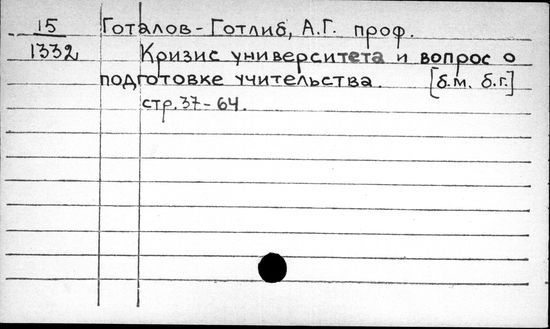 15 Готалов-Готлиб, А.Г. проф.
1332 Кризис университета и вопрос о
подготовке учительства. [б.м. б.г.]
стр. 37-64.